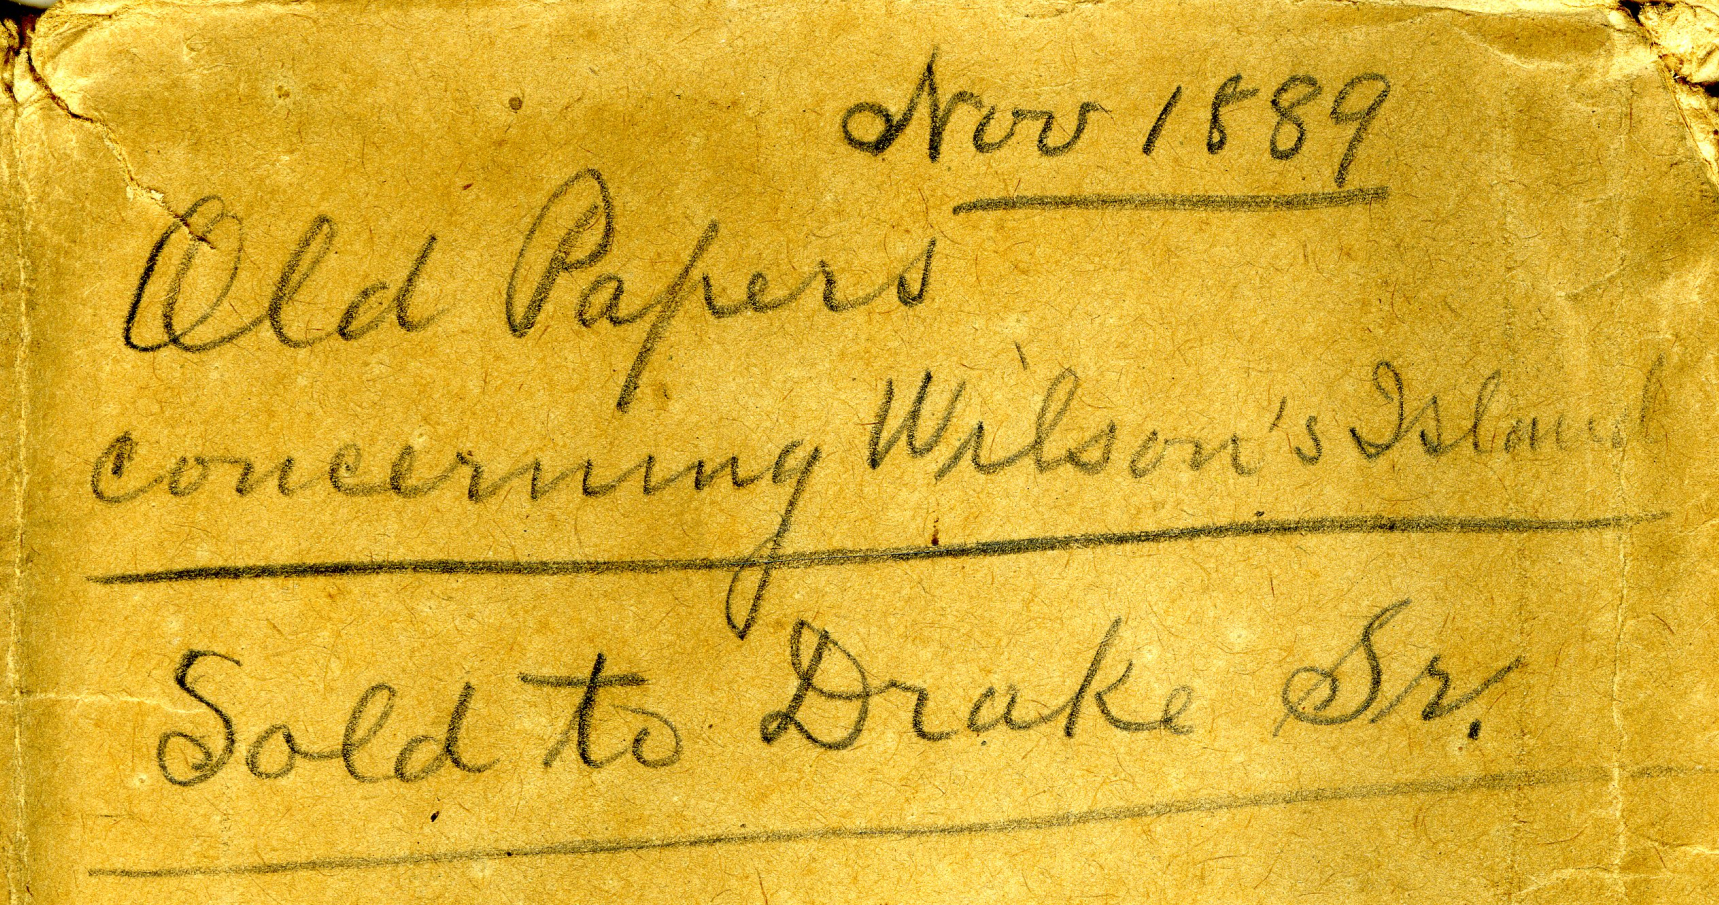 Nov 1889
Old Papers
concerning Wilson's Island
Sold to Drake Sr.